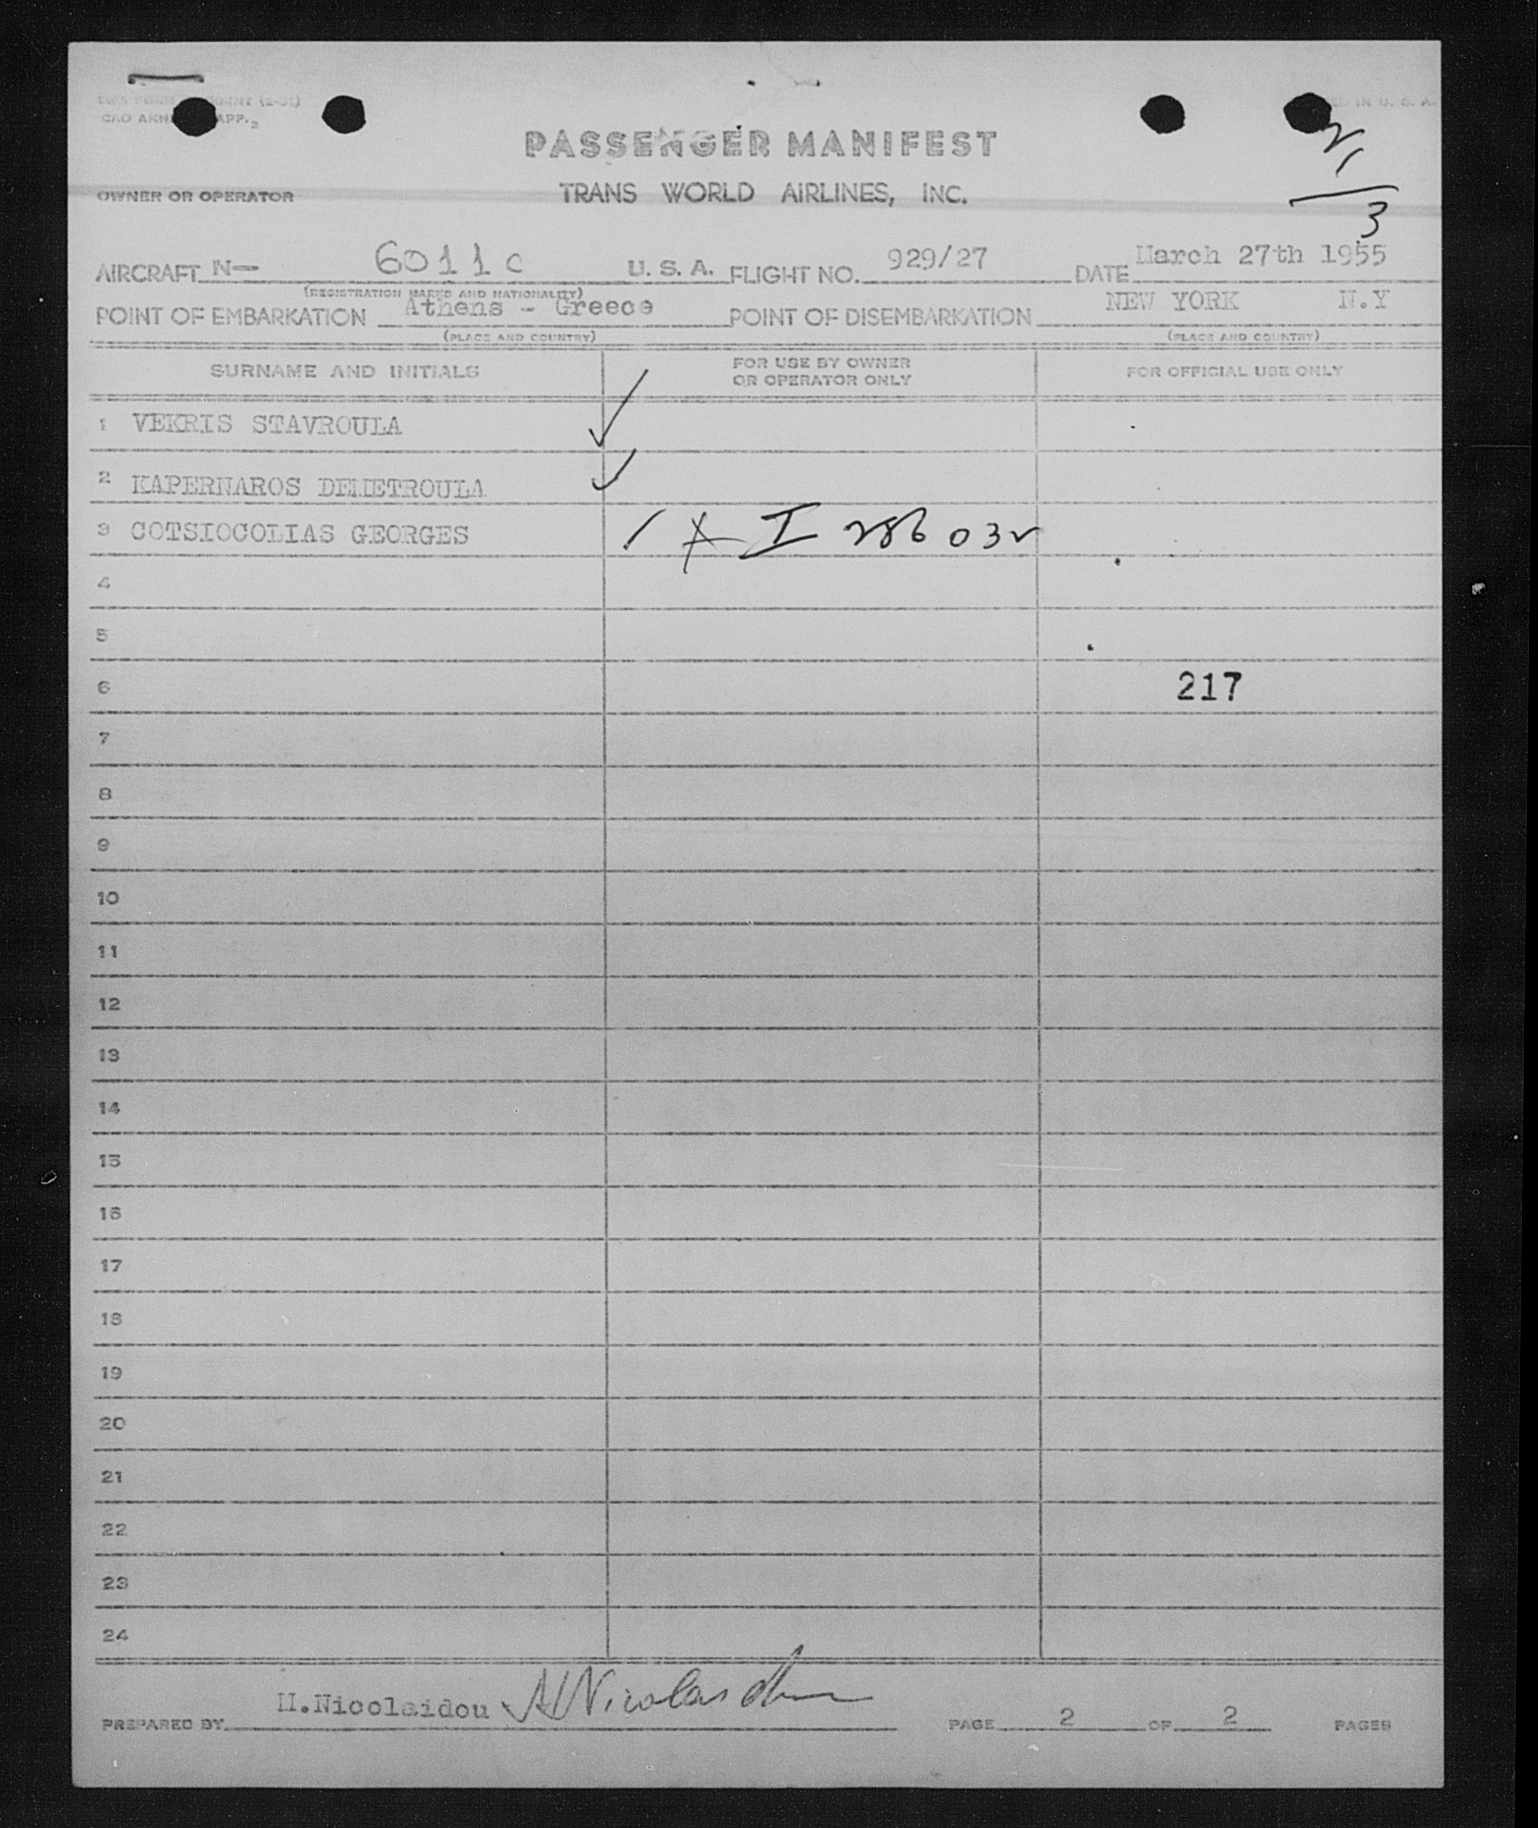 CAO APP. 2
IN U. S. A.
PASSENGER MANIFEST
21
3
OWNER OR OPERATOR TRANS WORLD AIRLINES, INC.
AIRCRAFT N- 6011C U. S. A. FLIGHT NO. 929/27 DATE March 27th 1955
(REGISTRATION MARKS AND NATIONALITY)
POINT OF EMBARKATION Athens - Greece POINT OF DISEMBARKATION NEW YORK N.Y
(PLACE AND COUNTRY) (PLACE AND COUNTRY)
SURNAME AND INITIALS FOR USE BY OWNER OR OPERATOR ONLY FOR OFFICIAL USE ONLY
1 VEKRIS STAVROULA
2 KAPERNAROS DEMETROULA
3 COTSIOCOLIAS GEORGES I 286032
4
5
6 217
7
8
9
10
11
12
13
14
15
16
17
18
19
20
21
22
23
24
PREPARED BY M.Nicolaidou PAGE 2 OF 2 PAGES